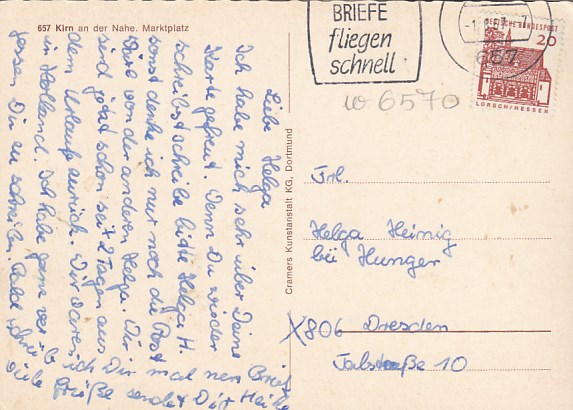 657 Kirn an der Nahe. Marktplatz
Liebe Helga
Ich habe mich sehr über Deine
Karte gefreut. Wenn Du wieder
schreibst schreibe bitte Helga H.
sonst denke ich nur noch die Post
wäre von der anderen Helga. Wir
sind jetzt schon seit 2 Tagen aus
dem Urlaub zurück. Wir waren
in Holland. Ich habe ganz ver
gessen Dir zu schreiben. Bald schreibe
ich Dir mal nen Brief
viele Grüße sendet Dir Heike
Cramers Kunstanstalt KG, Dortmund
BRIEFE
fliegen
schnell
657
DEUTSCHE BUNDESPOST
20
LORSCH/HESSEN
W 6570
Frl.
Helga Heinig
bei Hunger
X806 Dresden
Talstraße 10